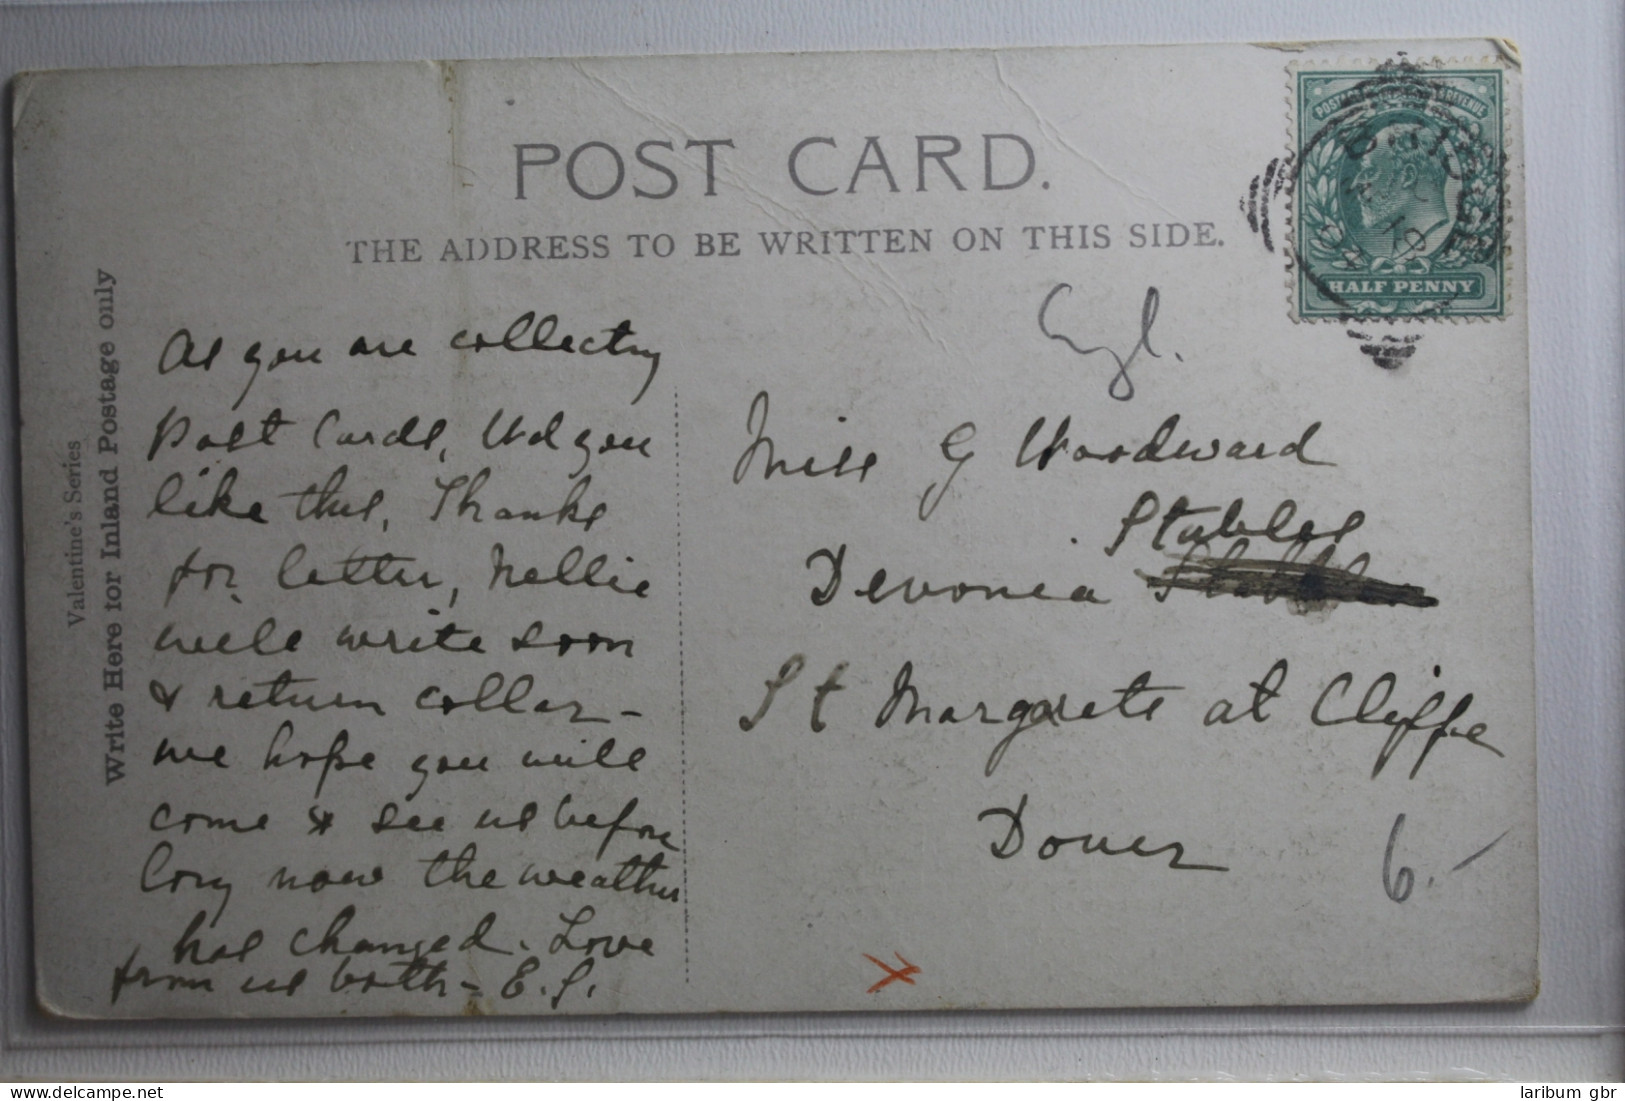 POST CARD.
THE ADDRESS TO BE WRITTEN ON THIS SIDE.
Valentine's Series
Write Here for Inland Postage only
HALF PENNY
As you are collecting
Post Cards, Wd you
like this, Thanks
for letter, Nellie
will write soon
& return collar -
we hope you will
come & see us before
long now the weather
has changed. Love
from us both - E. S.
Engl.
Miss G Woodward
Stables
Devonia
St Margarets at Cliffe
Dover
6.-
laribum gbr